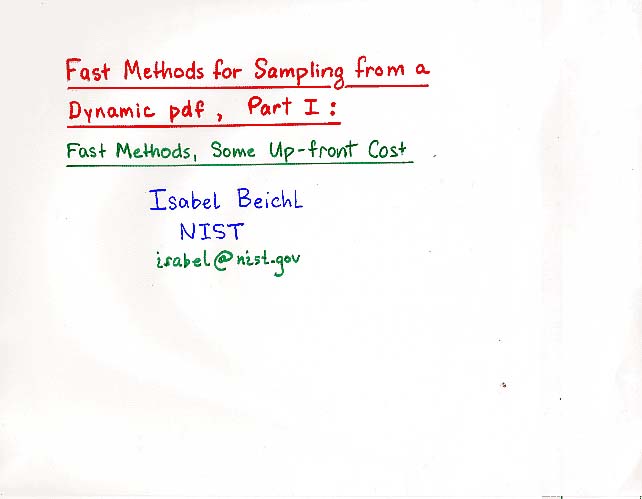 Fast Methods for Sampling from a
Dynamic pdf, Part I:
Fast Methods, Some Up-front Cost
Isabel Beichl
NIST
isabel@nist.gov